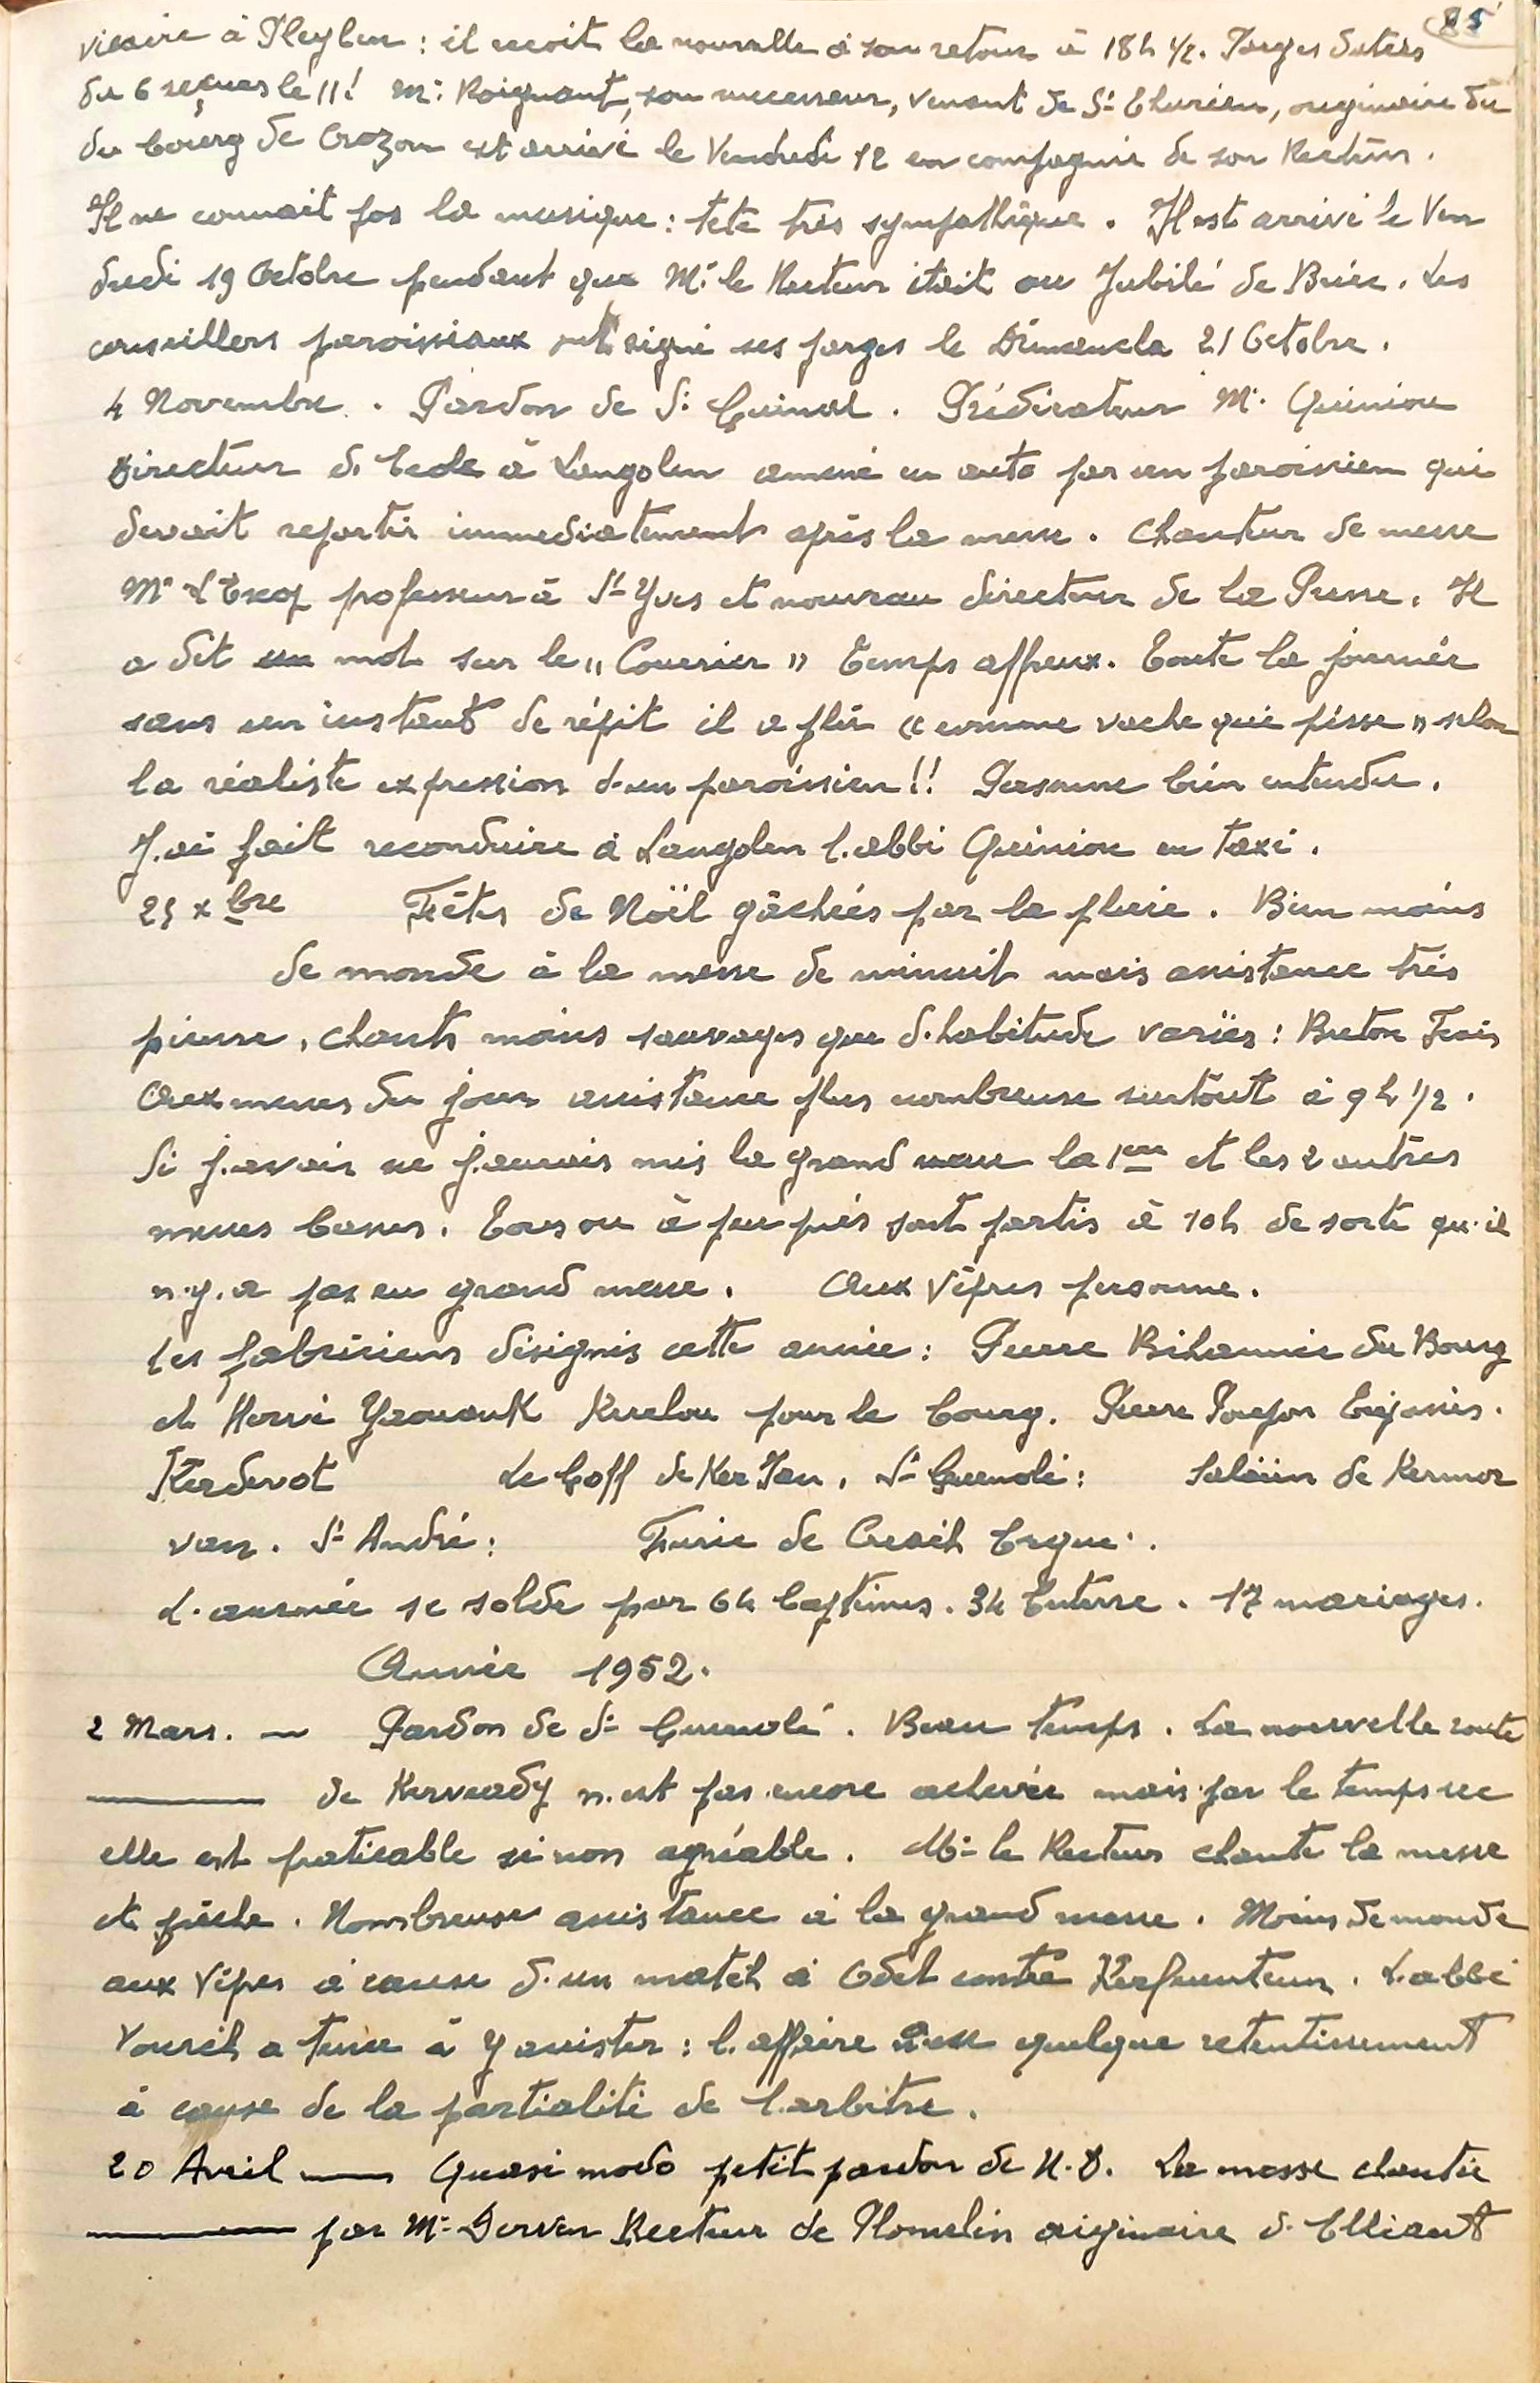 85
vicaire à Pleyben : il reçoit la nouvelle à son retour à 18h 1/2. Pouvoirs datés
du 6 reçus le 11! Mr Roignant, son successeur, venant de St Thurien, originaire du
du bourg de Crozon est arrivé le Vendredi 12 en compagnie de son Recteur.
Il ne connait pas la musique : tête très sympathique. Il est arrivé le Ven
dredi 19 Octobre pendant que Mr le Recteur était au Jubilé de Briec. Les
conseillers paroissiaux ont signé ses pages le Dimanche 21 Octobre.
4 Novembre. Pardon de St Guinal. Prédicateur Mr. Quiniou
Directeur d. Ecole à Langolen amené en auto par un paroissien qui
devait repartir immediatement après la messe. Chanteur de messe
Mr L'Excop professeur à St Yves et nouveau directeur de la Presse. Il
a dit un mot sur le "Courrier" Temps affreux. Toute la journée
sans un instant de répit il a plu "comme vache qui pisse" selon
la réaliste expression d'un paroissien!! Personne bien entendu.
J'ai fait reconduire à Langolen l'abbé Quiniou en taxi.
25 xbre Fêtes de Noël gâchées par la pluie. Bien moins
de monde à la messe de minuit mais assistance très
pieuse, chants moins sauvages que d'habitude variés : Breton Frais
Aux messes du jour assistance plus nombreuse surtout à 9h 1/2.
Si j'avais su j'aurais mis la grand messe la 1ere et les 2 autres
messes basses. Tous ou à peu près sont partis à 10h de sorte qu'il
n'y a pas eu grand messe. Aux Vêpres personne.
Les fabriciens désignés cette année : Pierre Rihannic du Bourg
et Hervé Yaouank Kerelou pour le bourg. Pierre Poupon Créjanis.
Kerdevot Le Goff de Ker Jan. St Guenolé : Salaün de Kermor
van. St André : Feunie de Creach Ergue.
L'année se solde par 64 baptêmes. 34 Enterre. 17 mariages.
Année 1952.
2 Mars. — Pardon de St Guenolé. Beau temps. La nouvelle route
de Kerveady n'est pas encore achevée mais par le temps sec
elle est praticable sinon agréable. Mr le Recteur chante la messe
et prêche. Nombreuse assistance à la grand messe. Moins de monde
aux Vêpres à cause d'un match à Odet contre Kerfeunteun. L'abbé
Vourch a tenu à y assister : l'affaire eut quelque retentissement
à cause de la partialité de l'arbitre.
20 Avril — Quasimodo petit pardon de N.D. La messe chantée
par Mr Derven Recteur de Plomelin originaire d. Elliant